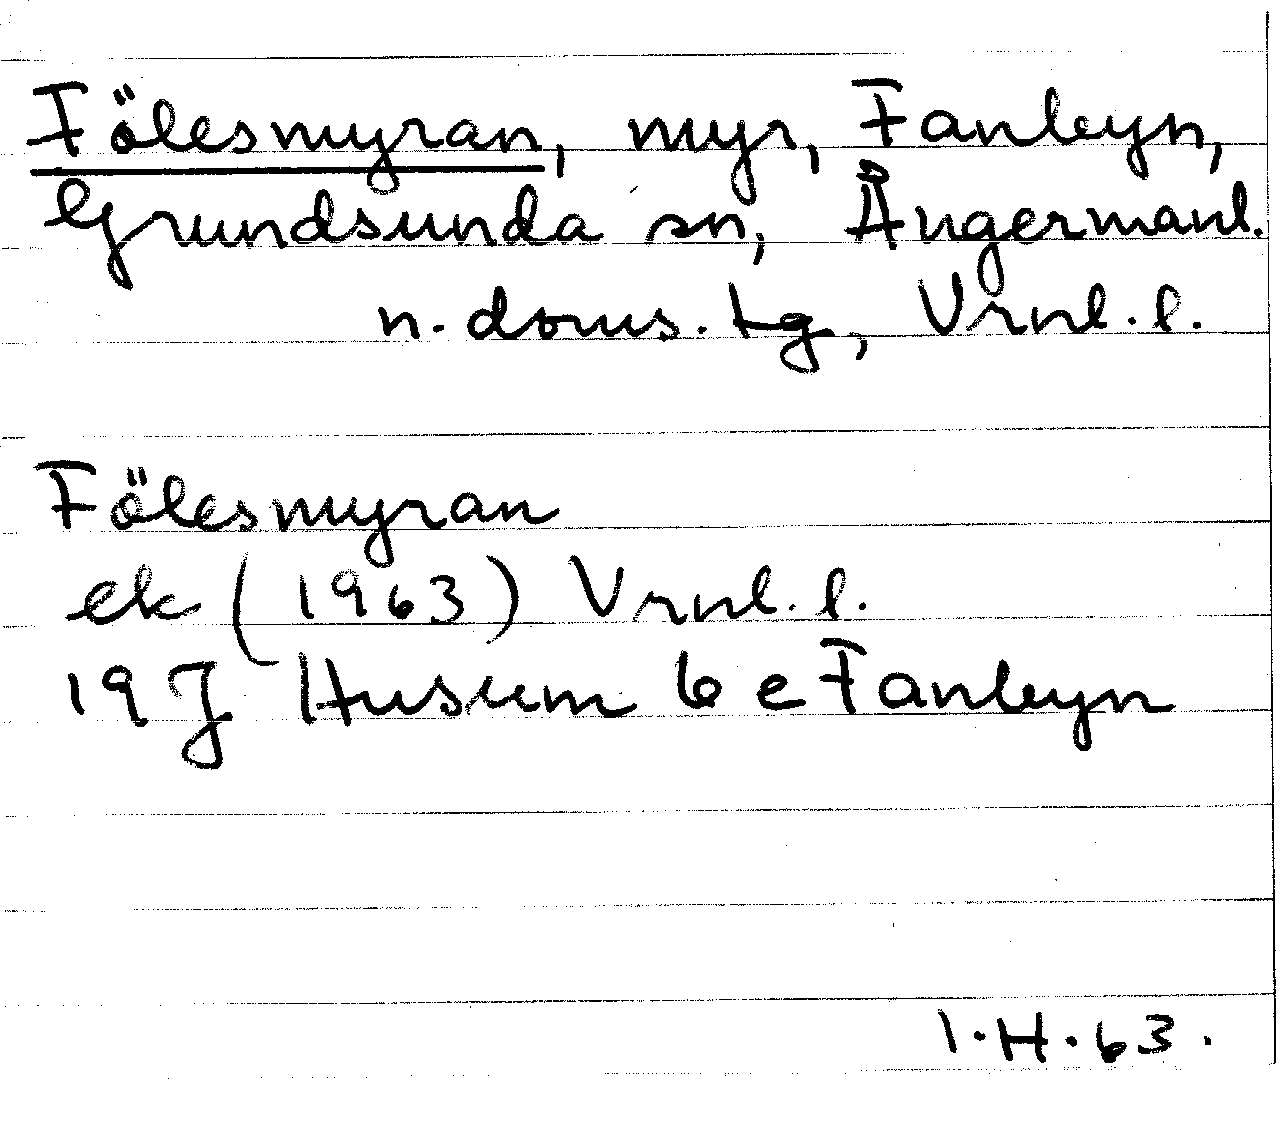 Fölesmyran, myr, Fanbyn,
Grundsunda sn, Ångermanl.
n. doms. tg, Vrnl. l.
Fölesmyran
ek (1963) Vrnl. l.
19J Husum 6 e Fanbyn
I.H. 63.